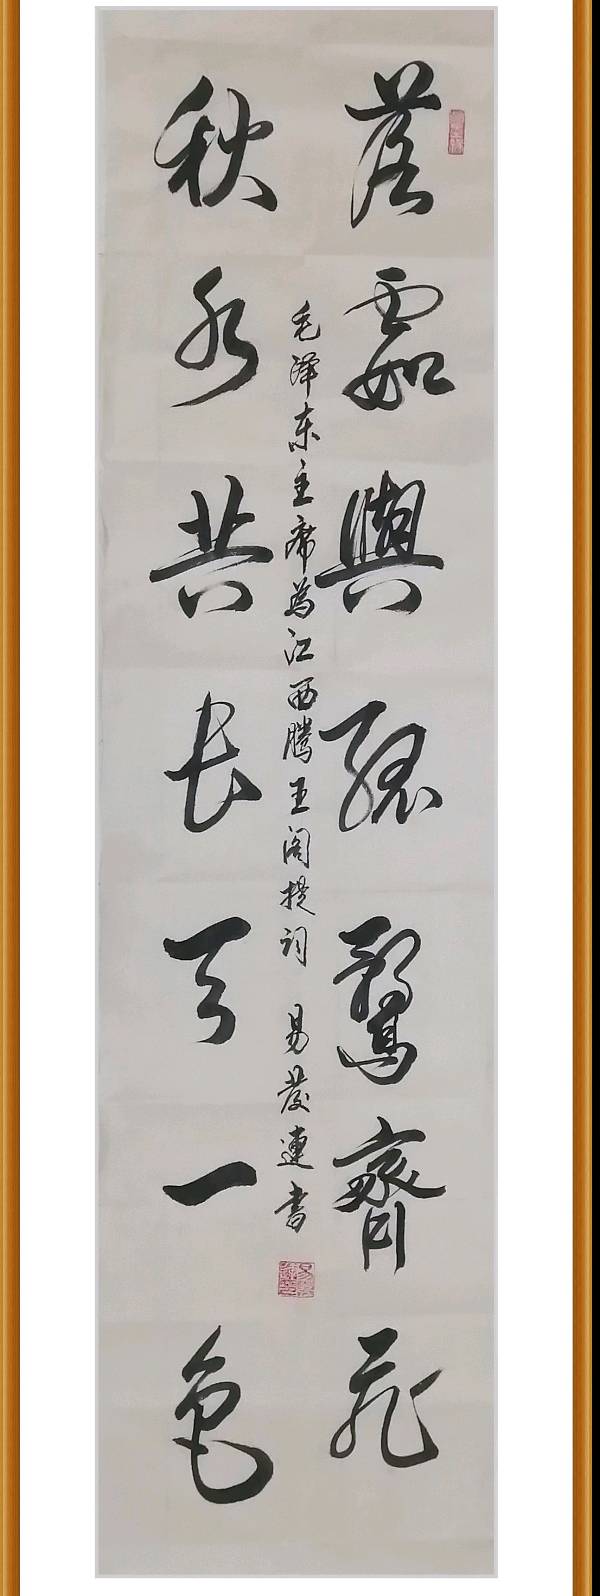 落霞與孤鶩齊飛
秋水共长天一色
毛泽东主席為江西腾王阁提词 易發連書